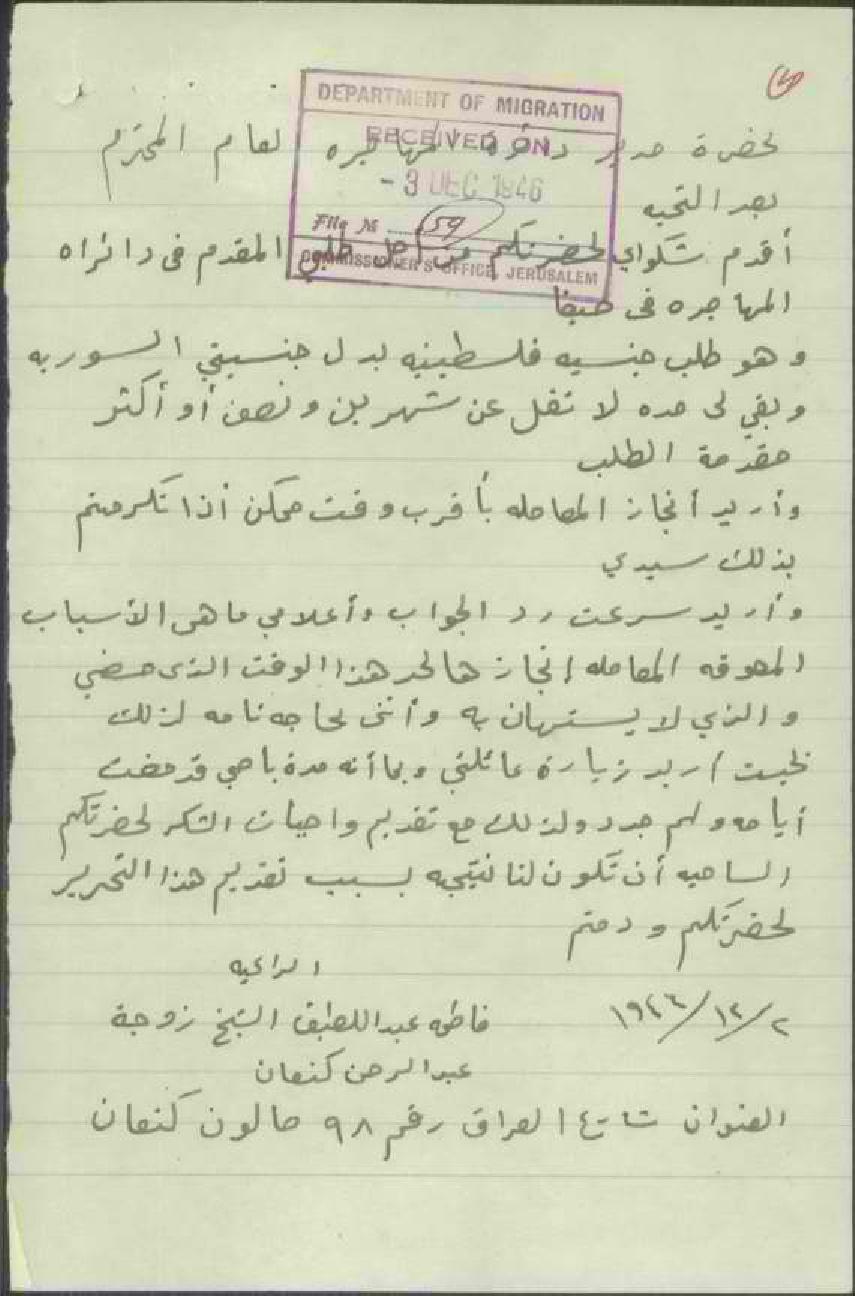 DEPARTMENT OF MIGRATION
RECEIVED ON
- 3 DEC 1946
File No 159
COMMISSIONER'S OFFICE, JERUSALEM
لحضرة مدير دائرة المهاجره لعام المحترم
بعد التحيه
أقدم شكواي لحضرتكم من أجل طلبي المقدم فى دائراه
المهاجره فى حيفا
وهو طلب جنسيه فلسطينيه بدل جنسيتي السوريه
وبقي لى مده لا تقل عن شهرين ونصف أو أكثر
مقدمة الطلب
وأريد أنجاز المعامله بأقرب وقت ممكن أذا تكرمتم
بذلك سيدي
وأريد سرعت رد الجواب وأعلامي ماهى الأسباب
المعوقه المعامله إنجازها لحد هذا الوقت الذى مضي
والذي لا يستهان به وأننى بحاجه تامه لذلك
بحيث أريد زيارة عائلتي وبما أنه مدة باصي قد مضت
أيامه ولم يجدد ولذلك مع تقديم واجبات الشكر لحضرتكم
الساميه أن تكون لنا نتيجه بسبب تقديم هذا التحرير
لحضرتكم ودمتم
الداعيه
٢/١٢/١٩٤٦ فاطمه عبداللطيف الشيخ زوجة
عبدالرحمن كنعان
العنوان شارع العراق رقم ٩٨ صالون كنعان